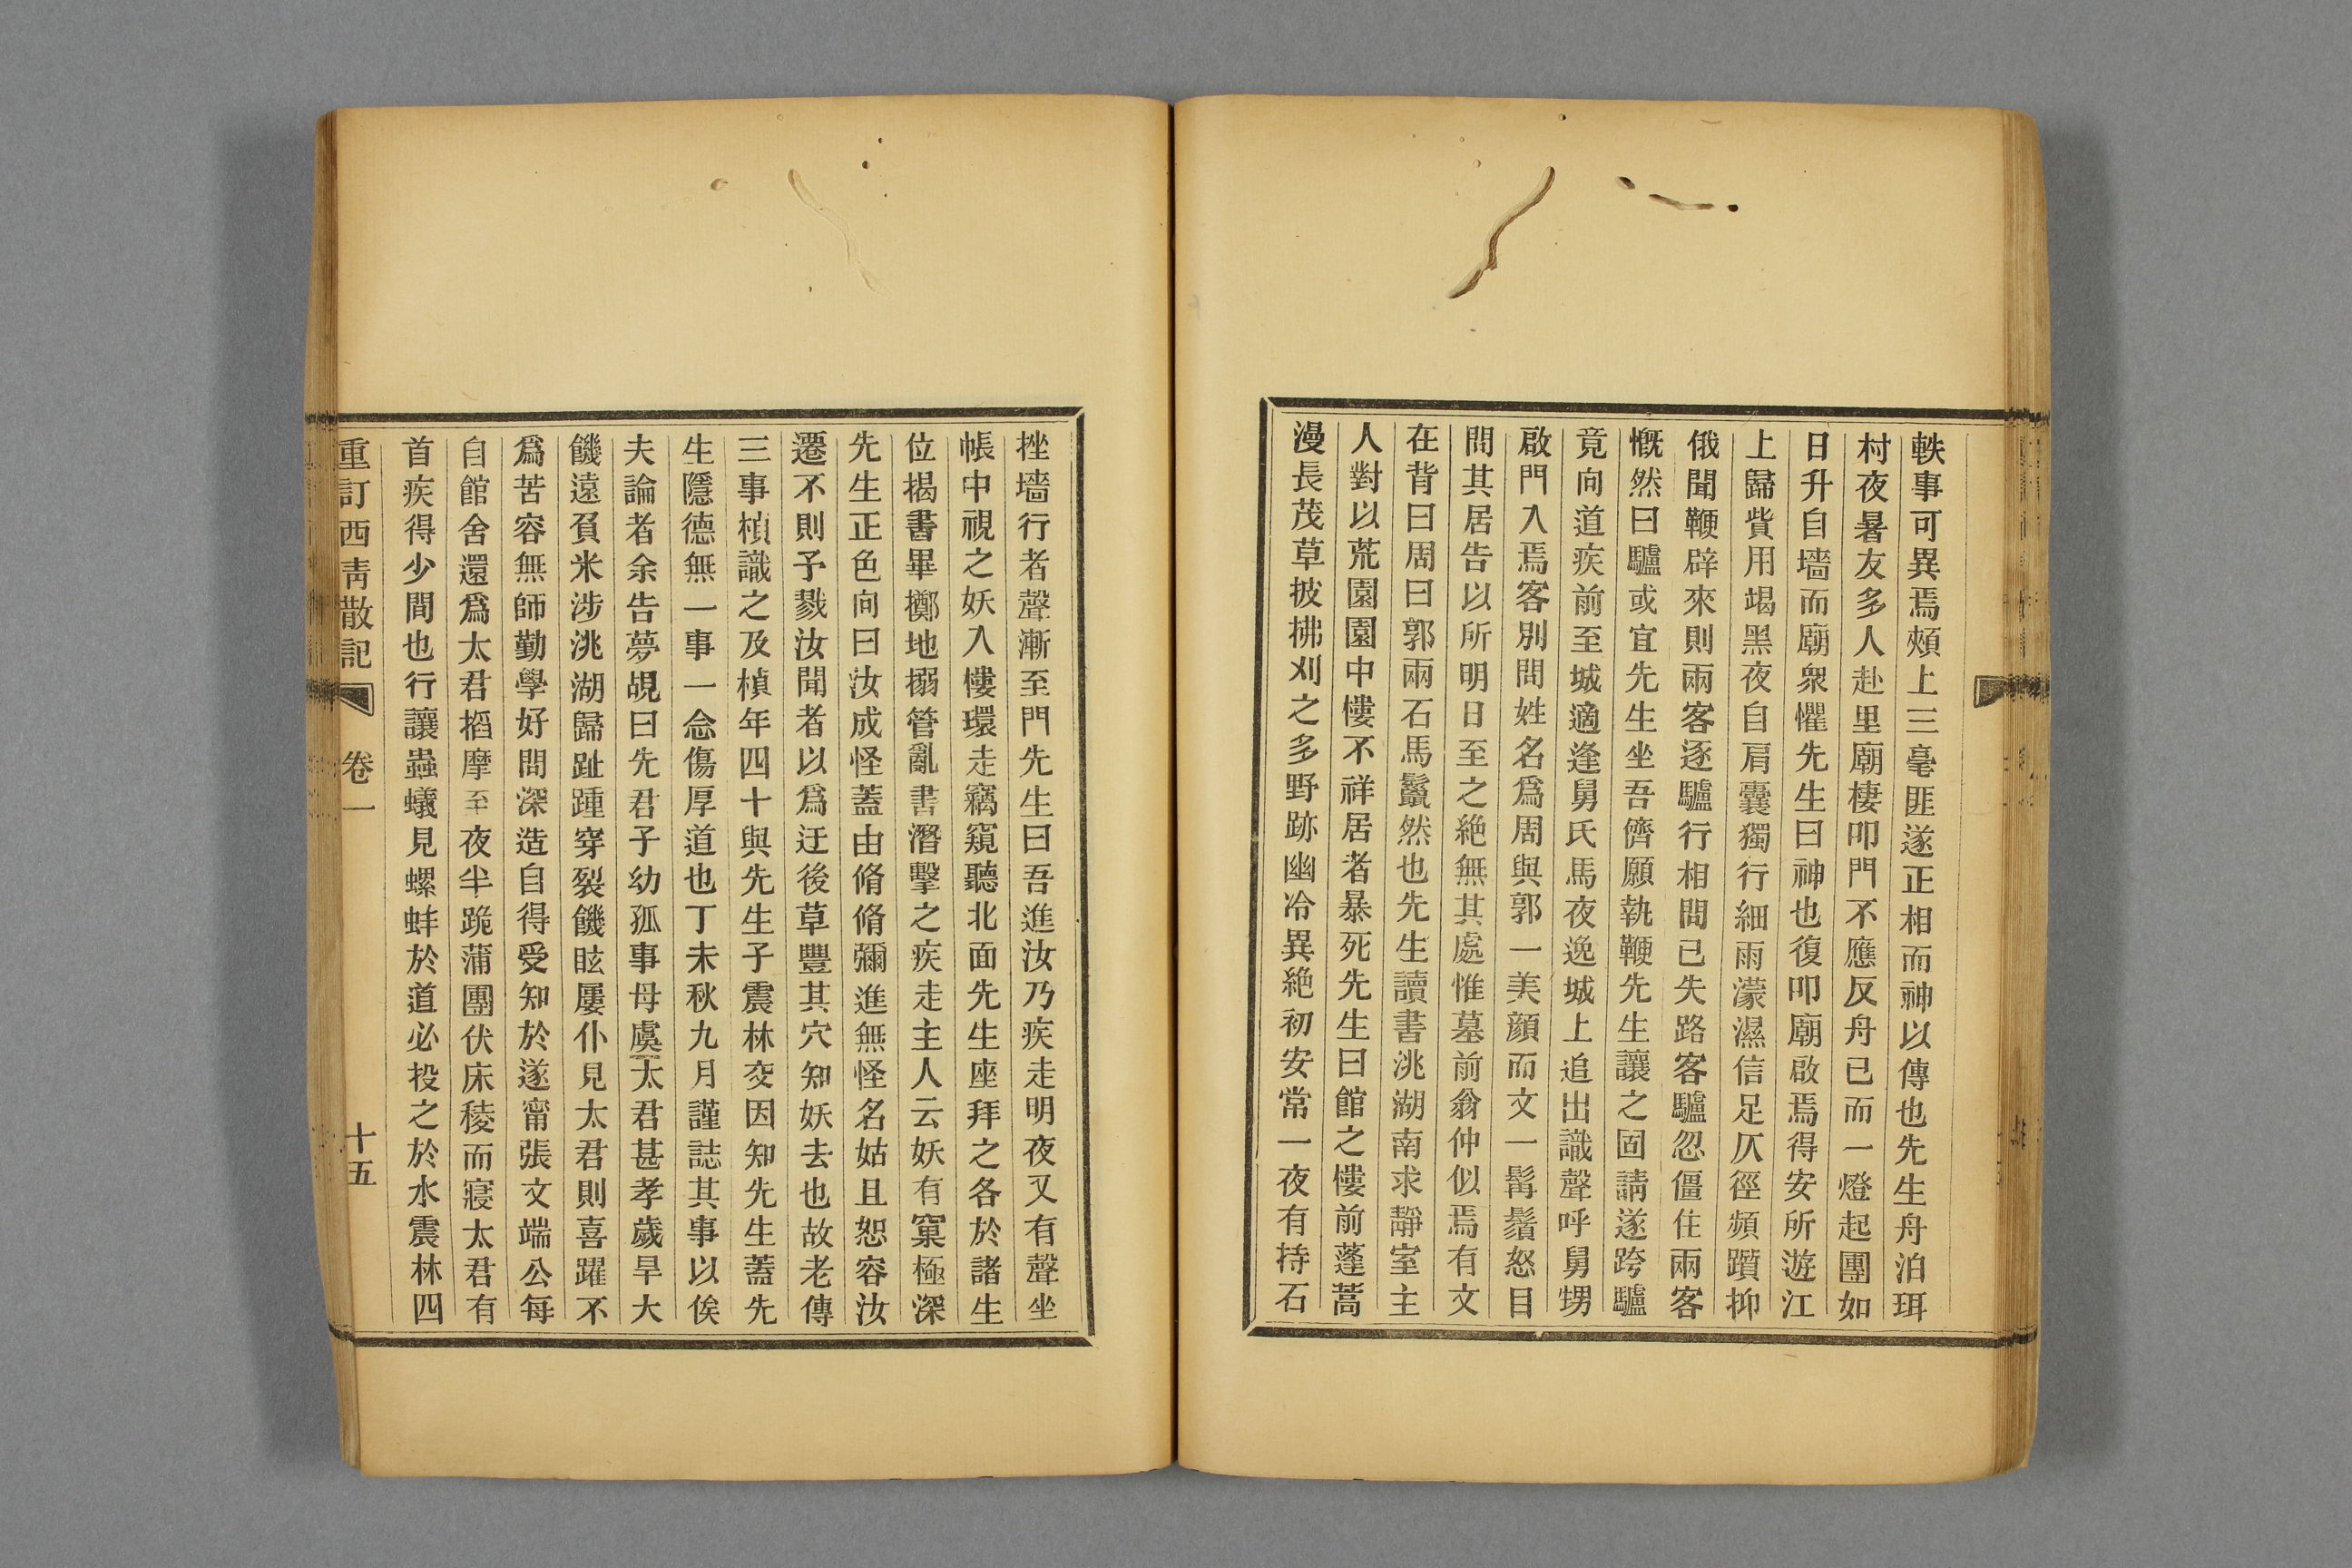 軼事可異焉頰上三毫匪遂正相而神以傳也先生舟泊珥
村夜暑友多人赴里廟棲叩門不應反舟已而一燈起團如
日升自墻而廟衆懼先生曰神也復叩廟啟焉得安所遊江
上歸貲用竭黑夜自肩囊獨行細雨濛濕信足仄徑頻躓抑
俄聞鞭辟來則兩客逐驢行相問已失路客驢忽僵住兩客
慨然曰驢或宜先生坐吾儕願執鞭先生讓之固請遂跨驢
竟向道疾前至城適逢舅氏馬夜逸城上追出識聲呼舅甥
啟門入焉客別問姓名爲周與郭一美顔而文一髯鬚怒目
問其居告以所明日至之絶無其處惟墓前翁仲似焉有文
在背曰周曰郭兩石馬鬣然也先生讀書洮湖南求靜室主
人對以荒園園中樓不祥居者暴死先生曰館之樓前蓬蒿
漫長茂草披拂刈之多野跡幽冷異絶初安常一夜有持石
挫墻行者聲漸至門先生曰吾進汝乃疾走明夜又有聲坐
帳中視之妖入樓環走竊窺聽北面先生座拜之各於諸生
位揭書畢擲地搦管亂書潛擊之疾走主人云妖有窠極深
先生正色向曰汝成怪蓋由脩脩彌進無怪名姑且恕容汝
遷不則予戮汝聞者以爲迂後草豐其穴知妖去也故老傳
三事楨識之及楨年四十與先生子震林交因知先生蓋先
生隱德無一事一念傷厚道也丁未秋九月謹誌其事以俟
夫論者余告夢覘曰先君子幼孤事母虞太君甚孝歲旱大
饑遠負米涉洮湖歸趾踵穿裂饑眩屢仆見太君則喜躍不
爲苦容無師勤學好問深造自得受知於遂甯張文端公每
自館舍還爲太君搯摩至夜半跪蒲團伏床稜而寢太君有
首疾得少間也行讓蟲蟻見螺蚌於道必投之於水震林四
重訂西青散記 卷一 十五